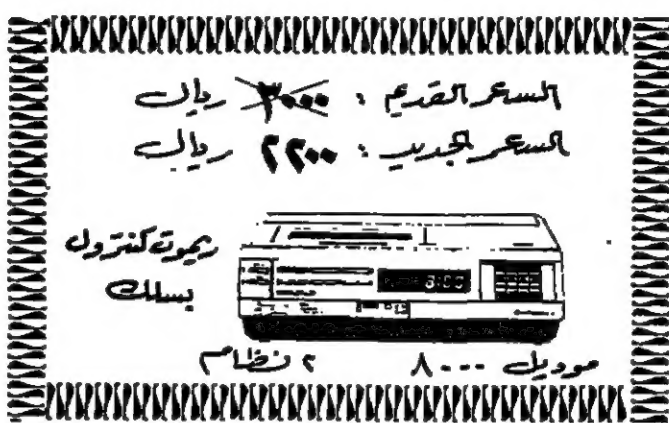 السعر القديم : ٣٠٠٠ ريال
السعر الجديد : ٢٢٠٠ ريال
ريموت كنترول
بسلك
موديل ٨٠٠٠ ٢ نظام